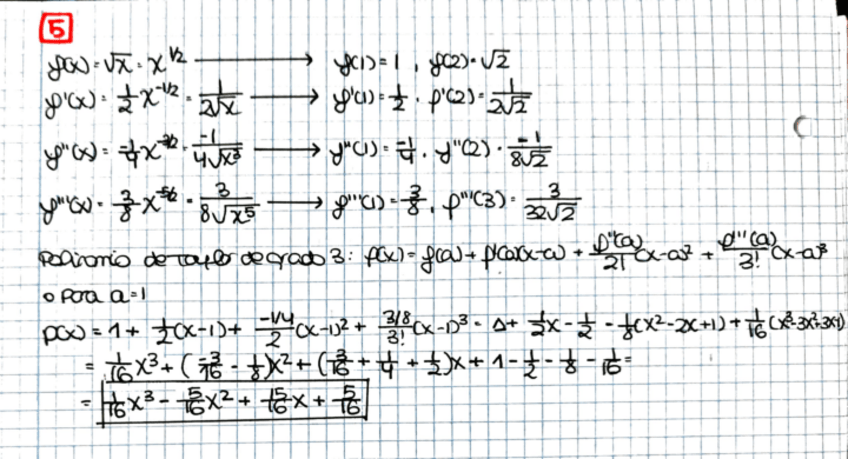 5
f(x) = √x = x^1/2 → f(1) = 1 , f(2) = √2
f'(x) = 1/2 x^-1/2 = 1/(2√x) → f'(1) = 1/2 , f'(2) = 1/(2√2)
f''(x) = -1/4 x^-3/2 = -1/(4√x³) → f''(1) = -1/4 , f''(2) = -1/(8√2)
f'''(x) = 3/8 x^-5/2 = 3/(8√x⁵) → f'''(1) = 3/8 , f'''(3) = 3/(32√2)
Polinomio de Taylor de grado 3: p(x) = f(a) + f'(a)(x-a) + f''(a)/2! (x-a)² + f'''(a)/3! (x-a)³
o Para a=1
p(x) = 1 + 1/2 (x-1) + (-1/4)/2 (x-1)² + (3/8)/3! (x-1)³ = 1 + 1/2 x - 1/2 - 1/8 (x²-2x+1) + 1/16 (x³-3x²+3x-1)
= 1/16 x³ + (-3/16 - 1/8)x² + (3/16 + 1/4 + 1/2)x + 1 - 1/2 - 1/8 - 1/16 =
= 1/16 x³ - 5/16 x² + 15/16 x + 5/16